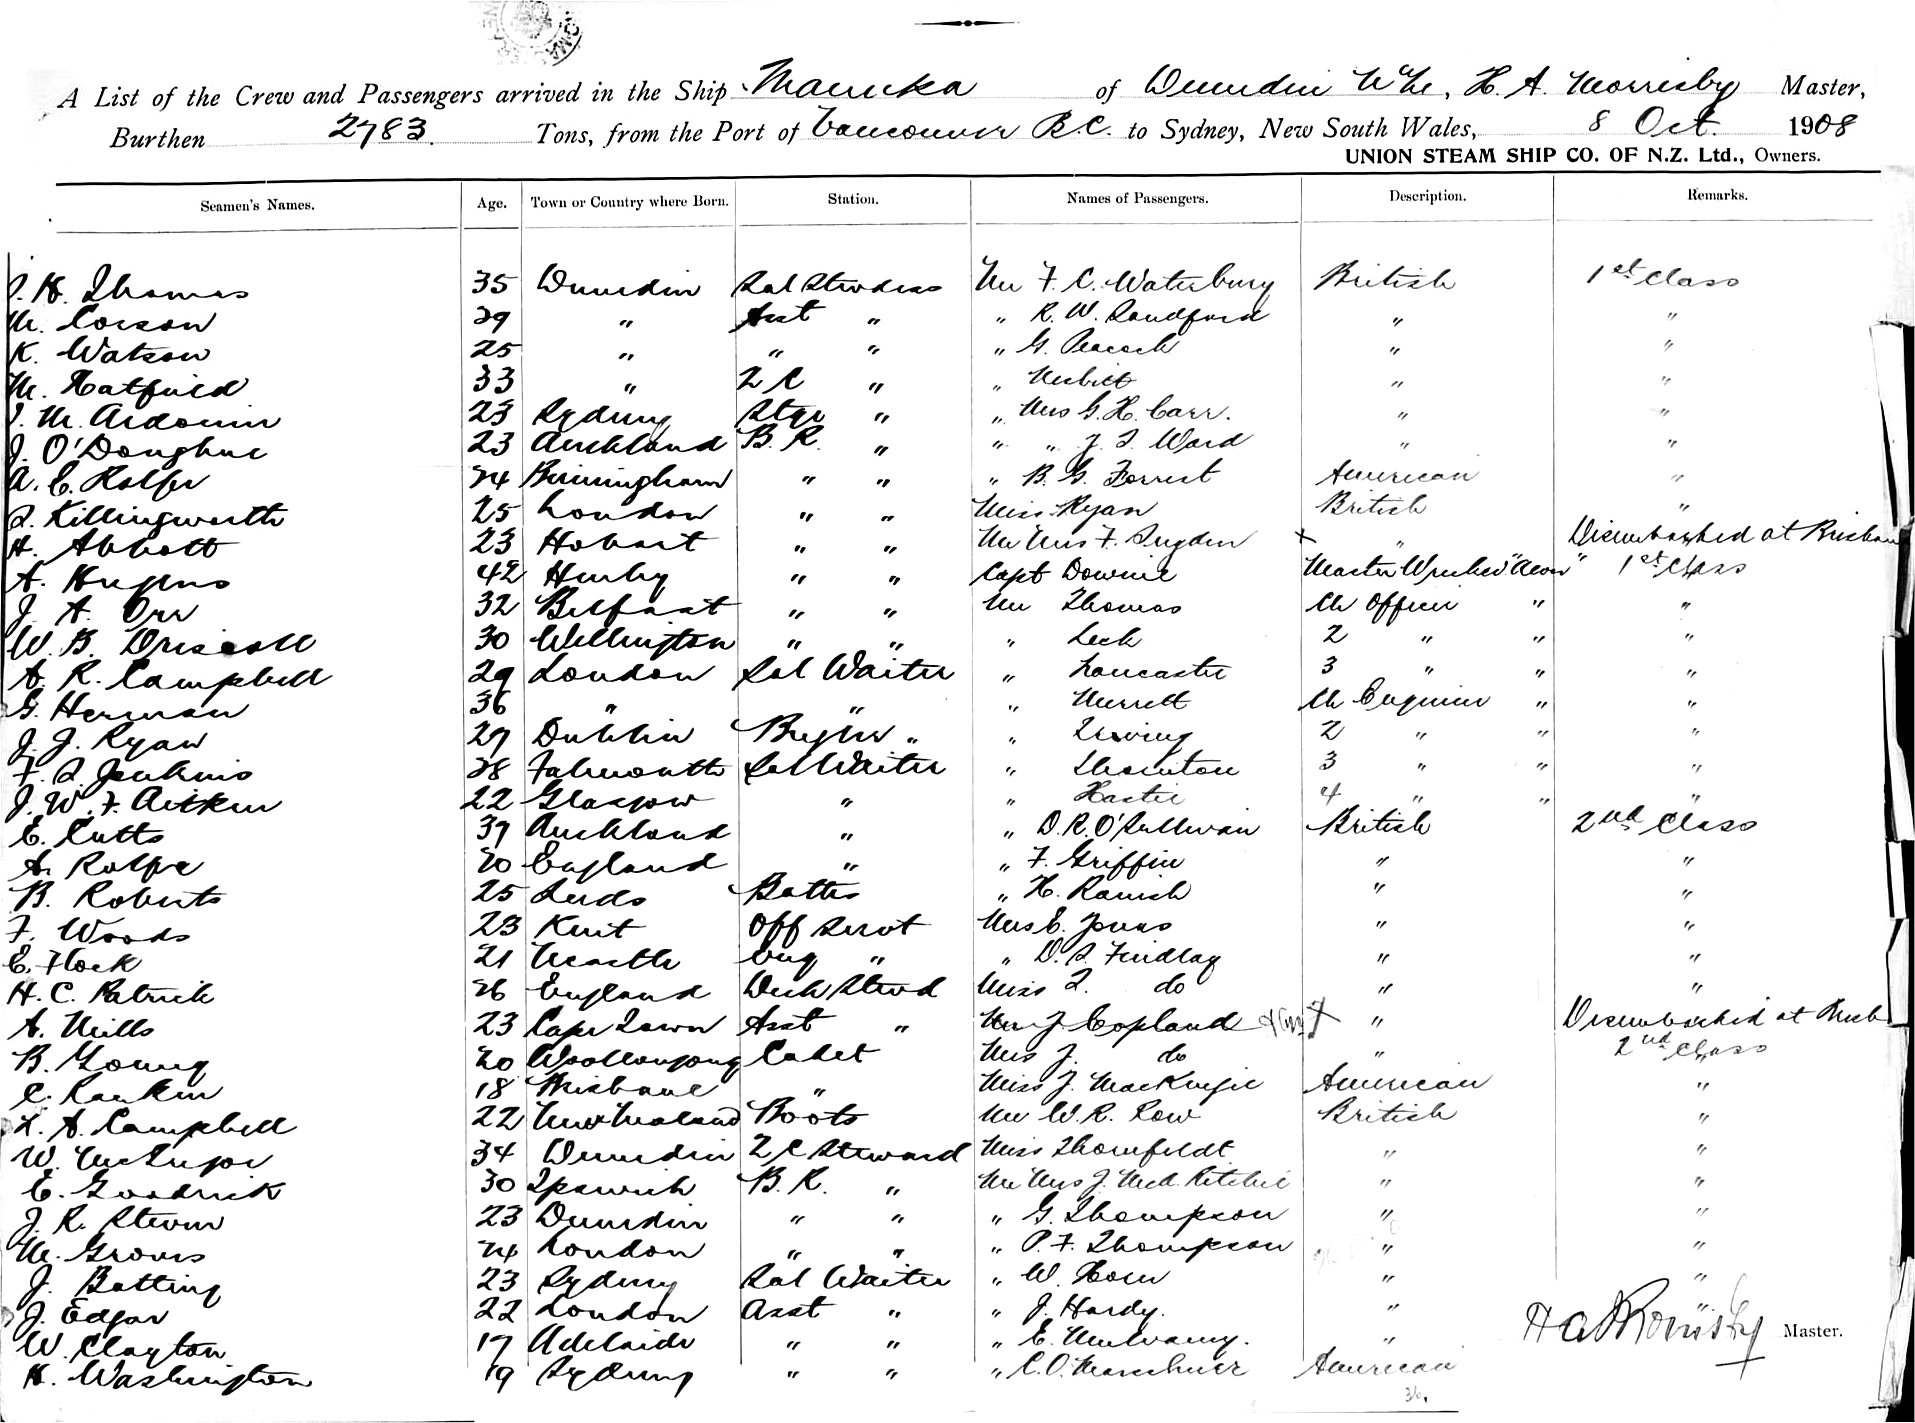 A List of the Crew and Passengers arrived in the Ship Manuka of Dunedin H. A. Morrisby Master,
Burthen 2783. Tons, from the Port of Vancouver B.C. to Sydney, New South Wales, 8 Oct. 1908
UNION STEAM SHIP CO. OF N.Z. Ltd., Owners.
Seamen's Names. Age. Town or Country where Born. Station. Names of Passengers. Description. Remarks.
H. Thomas 35 Dunedin Sal Stwdess Mr F. C. Waterbury British 1st Class
M. Corson 29 " Asst " " R. W. Sandford " "
K. Watson 25 " " " " G. Peacock " "
M. Hatfield 33 " 2 C " " Nesbitt " "
J. M. Ardouin 23 Sydney Stge " " Mrs G. H. Carr. " "
J. O'Donghue 23 Auckland B. R. " " " J. T. Ward " "
A. E. Rolfe 24 Birmingham " " " B. G. Forrest American "
Killingworth 25 London " " Miss Ryan British "
H. Abbott 23 Hobart " " Mr Mrs F. Sugden x " Disembarked at Brisban
A. Hugens 42 " " Capt Downie Master Wrecked "Aeon" 1st Class
J. A. Orr 32 Belfast " " Mr Thomas Ch Officer " "
W. B. Driscoll 30 Wellington " " " Leck 2 " " "
A. R. Campbell 29 London Sal Waiter " Lancaster 3 " " "
G. Herman 36 " " " Merrett Ch Engineer " "
J. J. Ryan 29 Dublin " " Irving 2 " " "
F. S. Jenkins 28 Falmouth Sal Waiter " Thornton 3 " " "
J. W. F. Aitken 22 Glasgow " " Hastie 4 " " "
C. Cutts 39 Auckland " " D. R. O'Sullivan British 2nd Class
A. Rolfe 20 England " " F. Griffin " "
B. Roberts 25 Leeds " H. Ranish " "
F. Woods 23 Kent Off Servt Mrs E. Jones " "
E. Flock 21 Ncastle Eng " " D. S. Findlay " "
H. C. Patrick 26 England Deck Stwd Miss I. do " "
A. Mills 23 Cape Town Asst " Mr J Copland " Disembarked at Brisb
B. Young 20 Woollongong Cadet Mrs J. do " 2nd Class
C. Rankin 18 Brisbane " Miss J. MacKenzie American "
L. A. Campbell 22 New Zealand Boots Mr W. R. Row British "
W. 34 Dunedin 2 C Steward Miss Thornfeldt " "
E. Goodrick 30 Ipswich B. R. " Mr Mrs J. McD. Ritchie " "
J. R. Steven 23 Dunedin " " " G. Thompson " "
M. Groves 24 London " " " P. F. Thompson " "
J. Batting 23 Sydney Sal Waiter " W. Horn " "
J. Edgar 22 London Asst " " J. Hardy. " "
W. Clayton 17 Adelaide " " " E. Mulvaney. "
H A Morrisby Master.
H. Washington 19 Sydney " " " C. O. American
36.